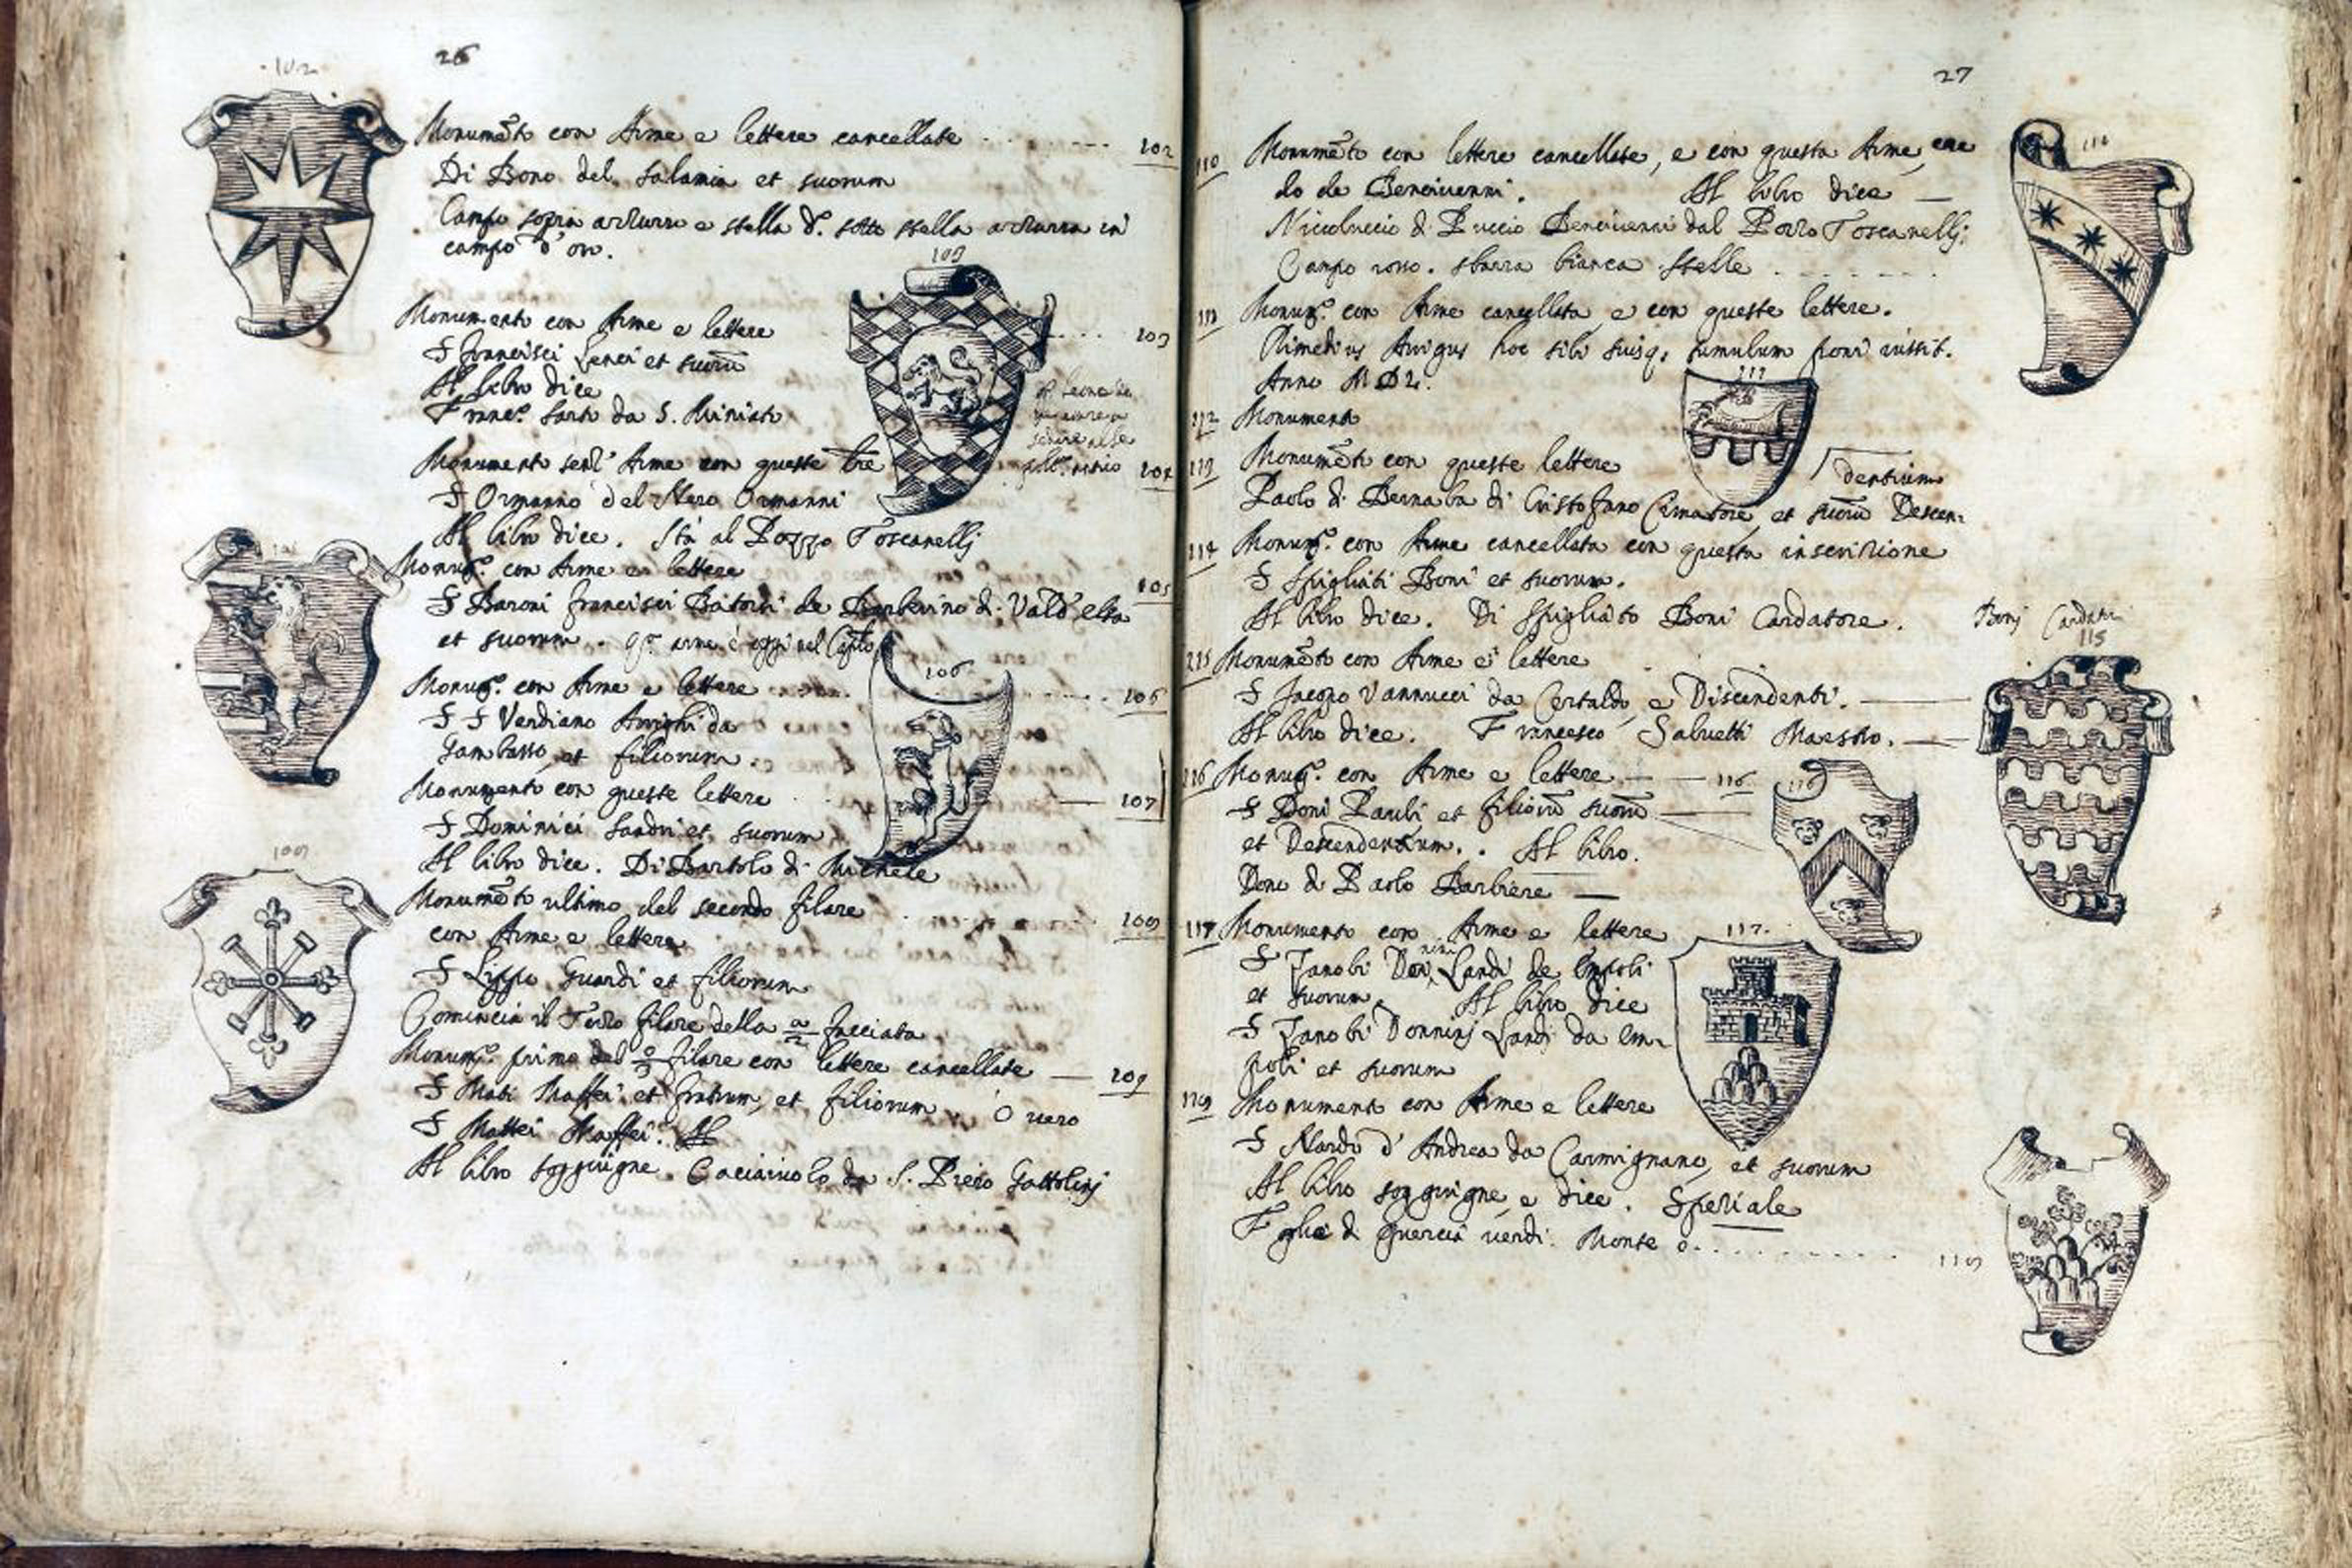 26
102
Monumẽto con Arme e lettere cancellate 102
Di Bono del Salamia et suorum
Campo sopra azzurro e stella d'o. sotto stella azzurra in
campo d'oro.
103
Monumento con Arme e lettere 103
S Francisci Lenci et suorũ
Al libro dice
Franco. sarto da S. Miniato
Monumento senz' Arme con queste lre 104
S Ormanno del Nero Ormanni
Al libro dice. Stà al Pozzo Toscanellj
Monumto. con Arme e lettere 105
S Baroni Francisci de Barberino di Vald'elsa
et suorum.
106
Monumto. con Arme e lettere 106
S S Verdiano Arrighi da
Gambasso, et filiorum.
Monumento con queste lettere 107
S Dominici Sandri et suorum
Al libro dice. Di Bartolo di Michele
108
Monumẽto ultimo del secondo filare 108
con Arme e lettere
S Lippo Guardi et filiorum
Comincia il Terzo filare della facciata
Monumto. primo del filare con lettere cancellate 109
S Mati Maffei et fratrum, et filiorum ò vero
S Mattei Maffei. Al
Al libro soggiugne. Caciaiuolo da S. Piero Gattolinj
27
110
110 Monumẽto con lettere cancellate, e con questa Arme, cre
do de Bencivenni. Al libro dice
Niccoluccio di Puccio Bencivenni dal Pozzo Toscanellj.
Campo rosso. sbarra bianca stelle
111 Monumto. con Arme cancellata, e con queste lettere.
Rimedius Arrigus hoc sibi suisq. tumulum poni iussit.
Anno
112 Monumento
113 Monumẽto con queste lettere
dentium
Paolo di Bernaba di Cristofano Cimatore, et suorũ Descen.
114 Monumto. con Arme cancellata con questa inscrizione
S Spigliati Boni et suorum.
Al libro dice. Di Spigliato Boni Cardatore.
Bonj Cardatri
115
115 Monumẽto con Arme e lettere
S Jacopo Vannucci da Certaldo, e Discendenti.
Al libro dice. Francesco Salvetti Maestro.
116 Monumto. con Arme e lettere 116
116
S Doni Pauli et filiorũ suorũ
et Descendentium. Al libro.
Dono di Paolo Barbiere
117 Monumento con Arme e lettere 117.
S Zanobi Donnini Landi de Empoli
et suorum. Al libro dice
S Zanobi Donninj Landi da Em-
poli et suorum
118 Monumento con Arme e lettere
S Nardo d'Andrea da Carmignano, et suorum
Al libro soggiugne, e dice. Speziale
Foglie di quercia verdi. Monte o. 118